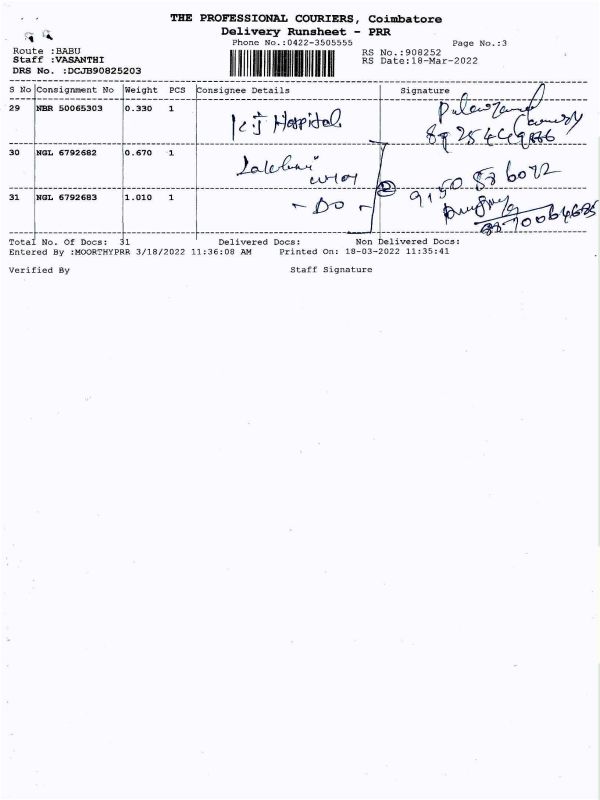 THE PROFESSIONAL COURIERS, Coimbatore
Delivery Runsheet - PRR
Phone No.:0422-3505555 Page No.:3
Route :BABU RS No.:908252
Staff :VASANTHI RS Date:18-Mar-2022
DRS No. :DCJB90825203
S No Consignment No Weight PCS Consignee Details Signature
29 NBR 50065303 0.330 1 Hospital
30 NGL 6792682 0.670 1 Lakshmi
31 NGL 6792683 1.010 1 - DO - 2
Total No. Of Docs: 31 Delivered Docs: Non Delivered Docs:
Entered By :MOORTHYPRR 3/18/2022 11:36:08 AM Printed On: 18-03-2022 11:35:41
Verified By Staff Signature